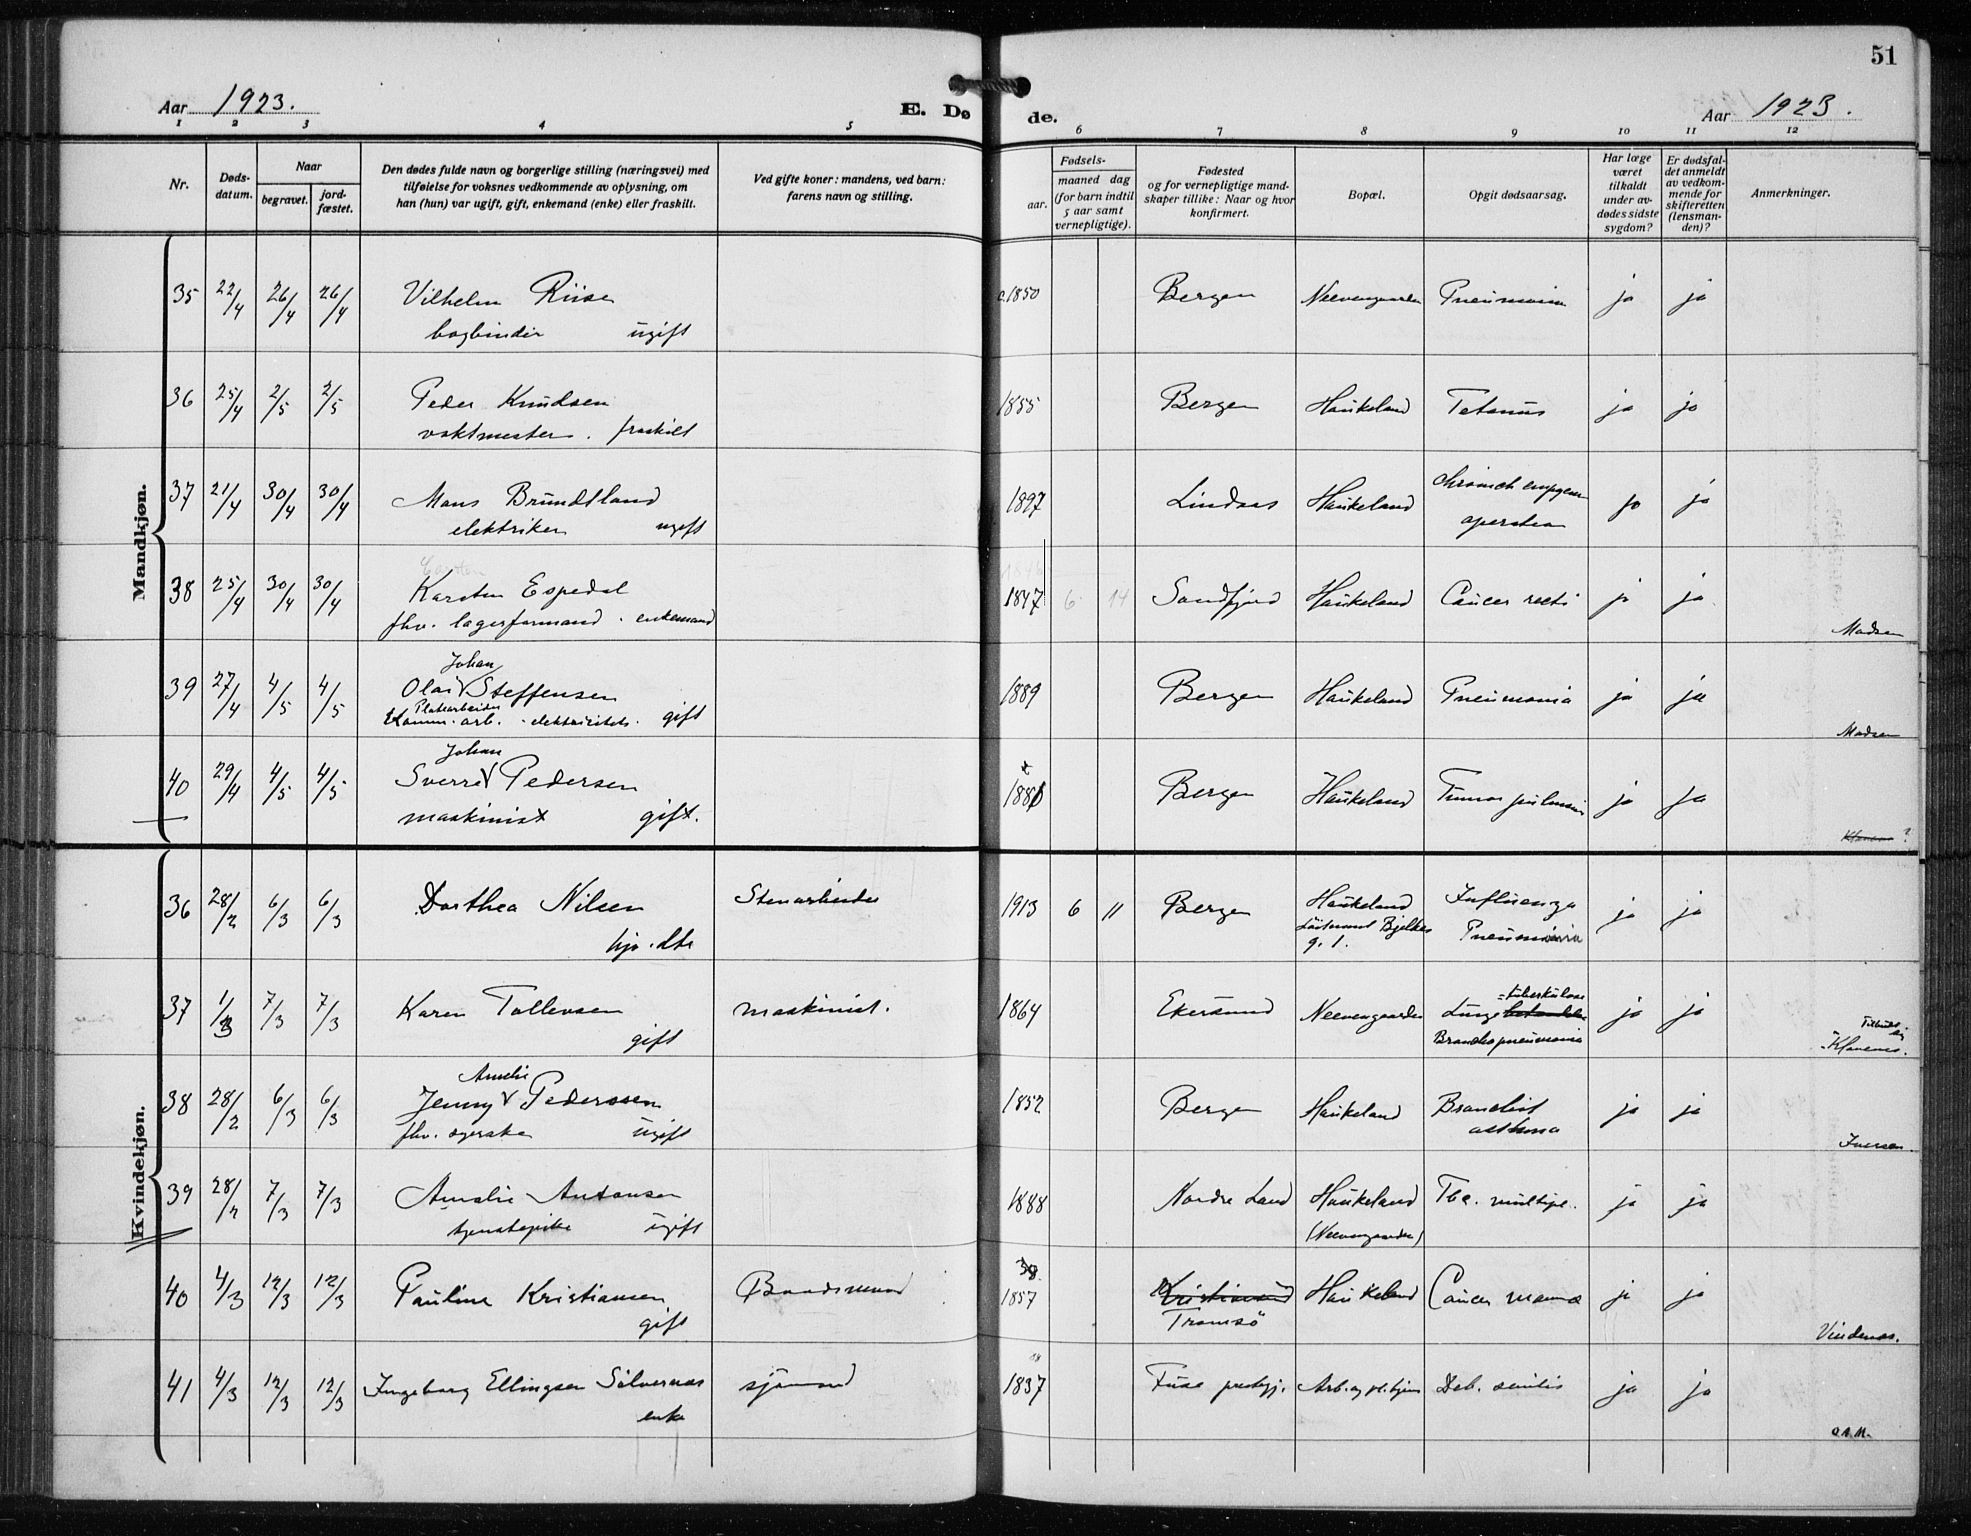 51
Aar 1923.
E. Dø
de.
Aar 1923.
1 2 3 4 5 6 7 8 9 10 11 12
Nr.
Døds-
datum.
Naar
begravet.
jord-
fæstet.
Den dødes fulde navn og borgerlige stilling (næringsvei) med
tilføielse for voksnes vedkommende av oplysning, om
han (hun) var ugift, gift, enkemand (enke) eller fraskilt.
Ved gifte koner: mandens, ved barn:
farens navn og stilling.
Fødsels-
aar.
maaned dag
(for barn indtil
5 aar samt
vernepligtige).
Fødested
og for vernepligtige mand-
skaper tillike: Naar og hvor
konfirmert.
Bopæl.
Opgit dødsaarsag.
Har læge
været
tilkaldt
under av-
dødes sidste
sygdom?
Er dødsfal-
det anmeldt
av vedkom-
mende for
skifteretten
(lensman-
den)?
Anmerkninger.
Mandkjøn.
35 22/4 26/4 26/4 Vilhelm Riise c.1850 Bergen Neevengaarden Pneumonia ja ja
bogbinder ugift
36 25/4 2/5 2/5 Peder Knudsen 1855 Bergen Haukeland Tetanus ja ja
vaktmester. fraskilt
37 21/4 30/4 30/4 Mons Brundtland 1897 Lindaas Haukeland chronisch empyem ja ja
elektriker ugift operation
Carsten
38 25/4 30/4 30/4 Karsten Espedal 1847 6 14 Sandfjord Haukeland Cancer recti ja ja
fhv. lagerformand. enkemand Madsen
Johan
39 27/4 4/5 4/5 Olai Steffensen 1889 Bergen Haukeland Pneumonia ja ja
Platearbeider
Komm. arb. elektricitets. gift Madsen
Johan
40 29/4 4/5 4/5 Sverre Pedersen 188 Bergen Haukeland Tumor pulmonis ja ja
maskinist gift. ?
Kvindekjøn.
36 28/2 6/3 6/3 Dorthea Nilsen Stenarbeider 1913 6 11 Bergen Haukeland Influenza ja ja
hjv. dtr Löitnant Bjelkes g. 1. Pneumonia
37 1/3 7/3 7/3 Karen Tollevsen maskinist. 1864 Ekersund Neevengaarden Lunge tuberkulose ja ja
gift Bronchopneumonia Klovenes.
Amalie
38 28/2 6/3 6/3 Jenny Pederssen 1852 Bergen Haukeland Bronchist ja ja
fhv. syerske ugift asthma Iversen.
39 28/2 7/3 7/3 Amalie Antonsen 1888 Nordre Land Haukeland Tbc. multipl. ja ja
tjenestepike ugift (Neevengaarden)
38
40 4/3 12/3 12/3 Pauline Kristiansen Baadsmand 1857 Kristiansund Haukeland Cancer mamma ja ja
gift Tromsö Vindenes.
41 4/3 12/3 12/3 Ingeborg Ellingsen Sölvernes sjömand 1837 Fuse prestgj. Arb. og pl. hjem Deb. senilis ja ja
enke O.N.M.